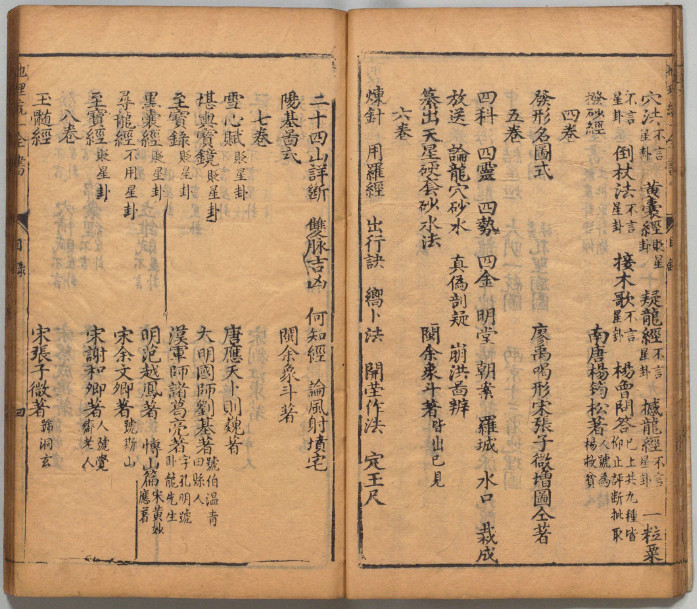 穴法不言星卦 黄囊經貶星卦 疑龍經不言星卦 撼龍經不言星卦 一粒粟
不言星卦 倒杖法不言星卦 接木歌不言星卦 楊曾問答已上共九種皆仰止評断批取
撥砂經 南唐楊筠松著人號為楊救貧
四卷
發形名圖式 廖禹喝形宋張子微增圖仝著
五卷
四科 四靈 四勢 四金 明堂 朝案 羅城 水口 裁成
放送 論龍穴砂水 真偽剖疑 崩洪啚辨
纂出天星硬套砂水法 閩余象斗著皆出己見
六卷
煉針 用羅經 出行訣 嚮卜法 開茔作法 定王尺
二十四山詳斷 雙脉吉凶 何知經 論風射墳宅
陽基啚式 閩余象斗著
七卷
雪心賦貶星卦 唐應天卜則巍著
堪輿寶鏡貶星卦 大明國師劉基著號伯温青田縣人
至寶錄貶星卦 漢軍師諸葛亮著字孔明號卧龍先生
黑囊經貶星卦 明范越鳳著 博山篇宋黄妙應著
尋龍經不用星卦 宋余文卿著
至寶經貶星卦 宋謝和卿著人號覺齋老人
八卷
玉髓經 宋張子微著號洞玄
地理 全書
目錄
四